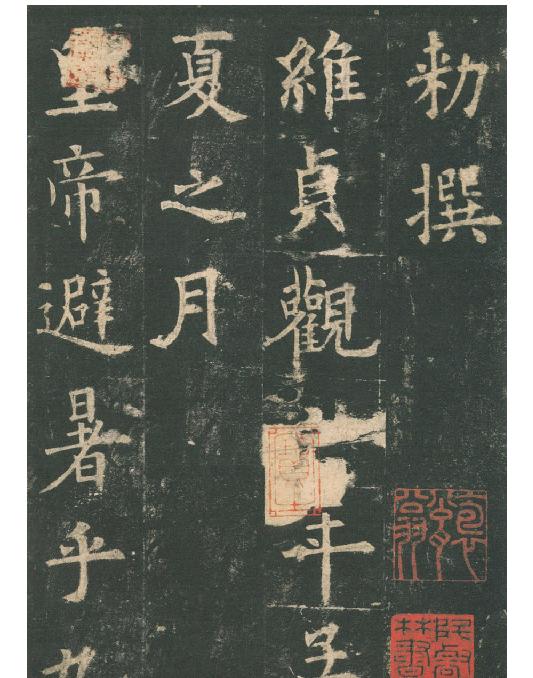 勅撰
維貞觀六年孟
夏之月
皇帝避暑乎九